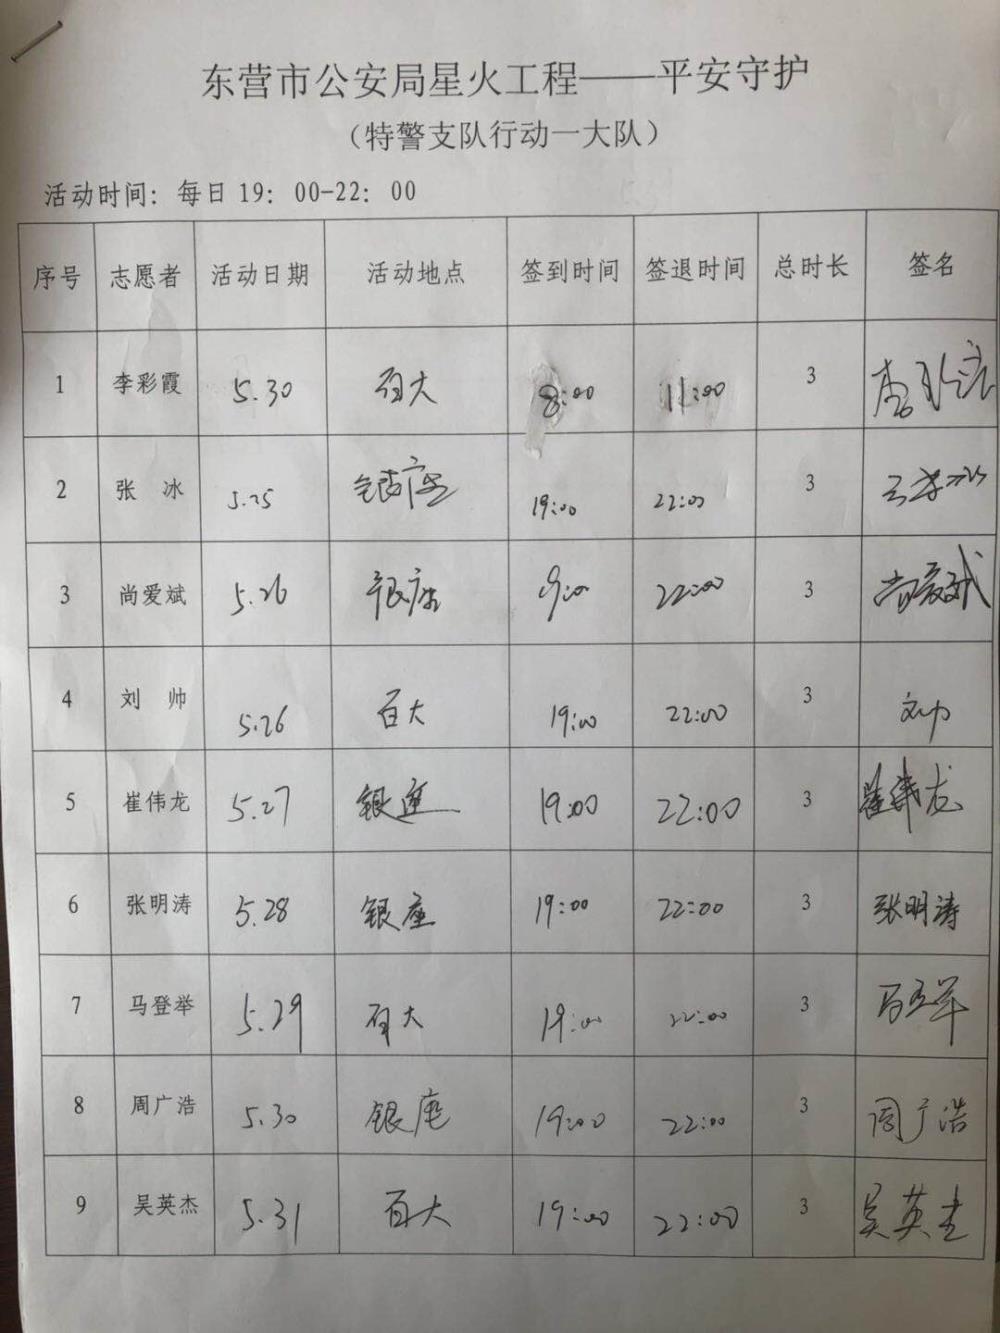 东营市公安局星火工程——平安守护
（特警支队行动一大队）
活动时间：每日 19：00-22：00
序号 志愿者 活动日期 活动地点 签到时间 签退时间 总时长 签名
1 李彩霞 5.30 百大 8:00 11:00 3 李彩霞
2 张 冰 5.25 银座 19:00 22:00 3 张冰
3 尚爱斌 5.26 银座 9:00 22:00 3 尚爱斌
4 刘 帅 5.26 百大 19:00 22:00 3 刘帅
5 崔伟龙 5.27 银座 19:00 22:00 3 崔伟龙
6 张明涛 5.28 银座 19:00 22:00 3 张明涛
7 马登举 5.29 百大 19:00 22:00 3 马登举
8 周广浩 5.30 银座 19:00 22:00 3 周广浩
9 吴英杰 5.31 百大 19:00 22:00 3 吴英杰